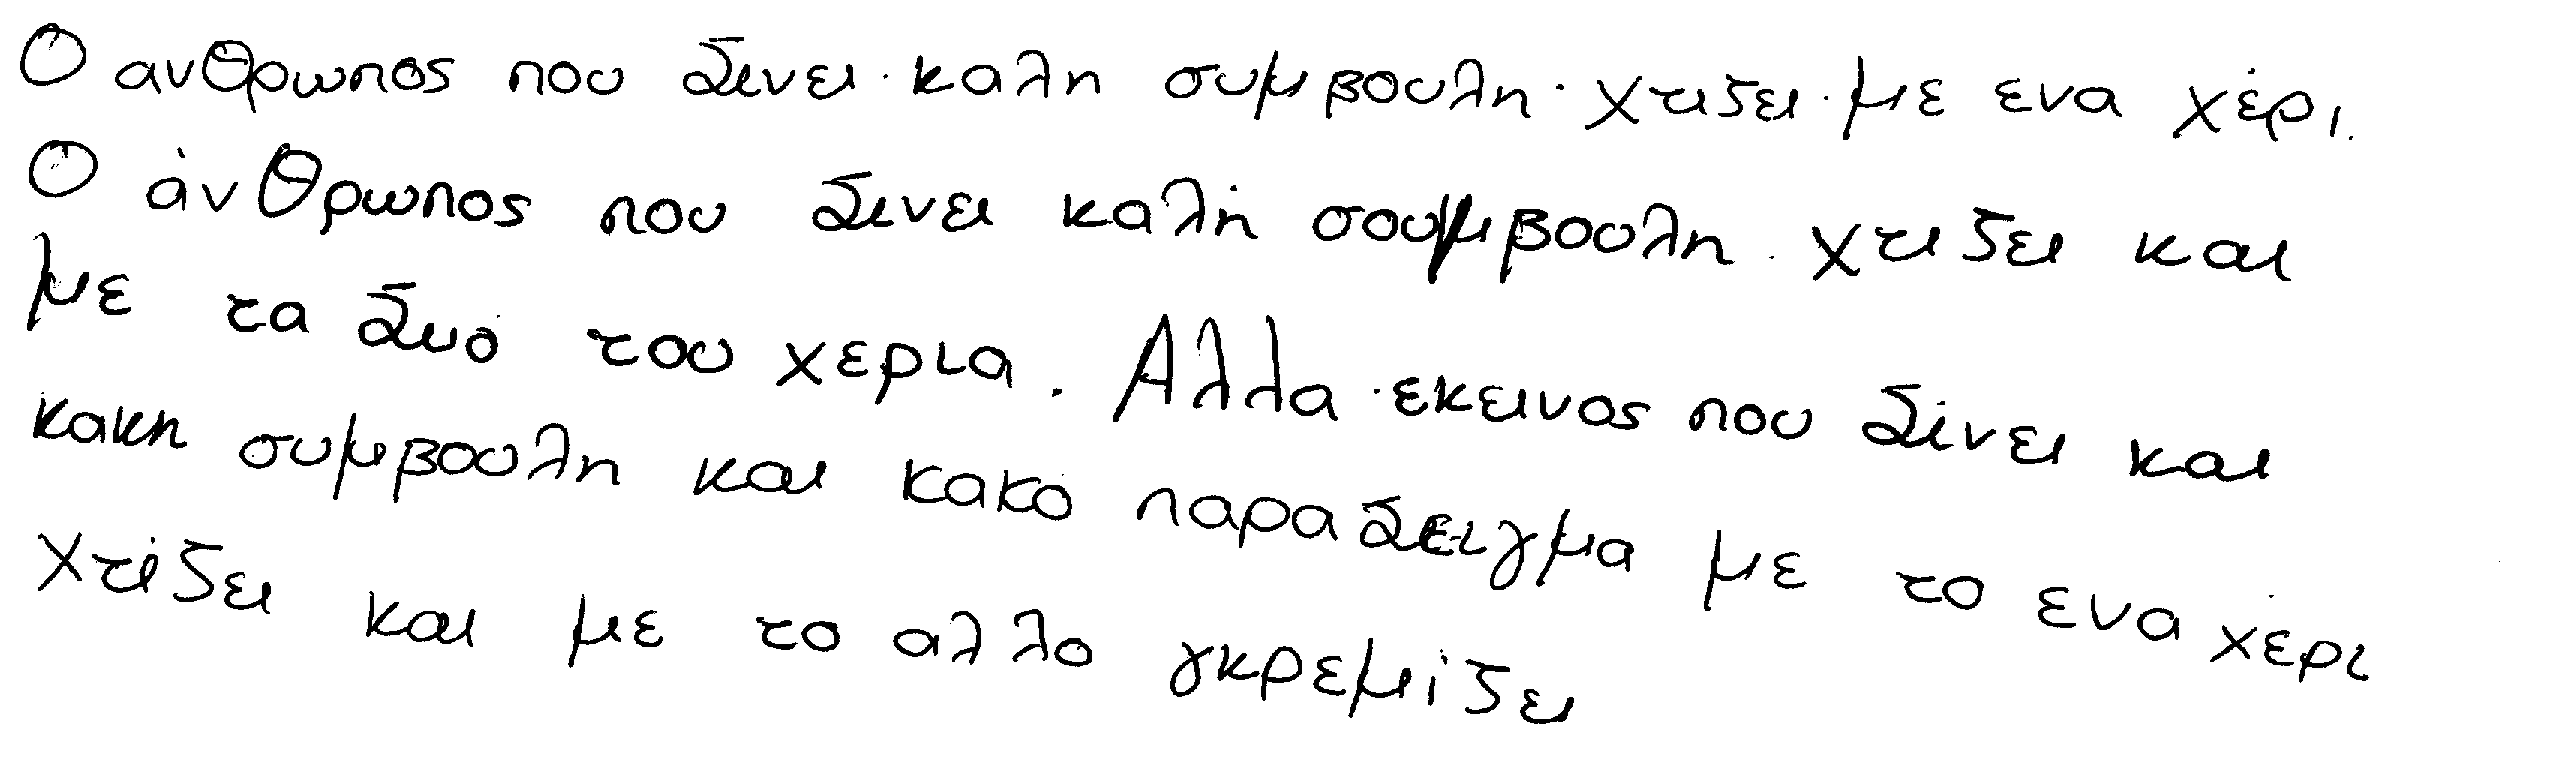 Ο ανθρωπος που δινει καλη συμβουλη χτιζει με ενα χέρι.
Ο άνθρωπος που δινει καλή σουμβουλη χτιζει και
με τα δυό του χερια. Αλλα εκεινος που δίνει και
κακη συμβουλη και κακό παραδειγμα με το ενα χέρι
χτίζει και με το αλλο γκρεμίζει